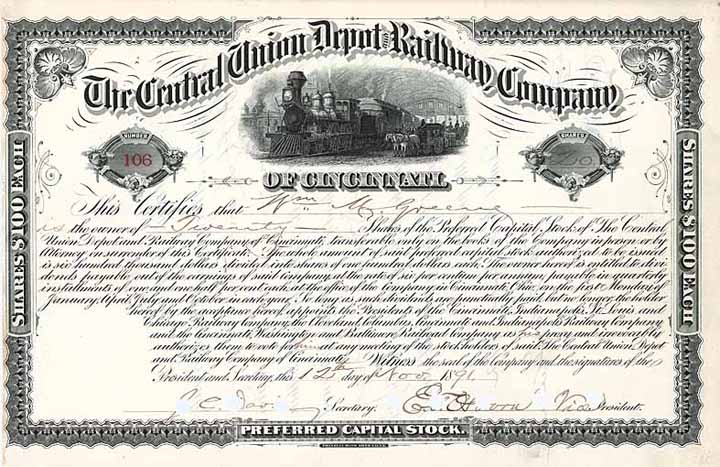 The Central Union Depot and Railway Company
OF CINCINNATI.
NUMBER
106
SHARES
20
SHARES $100 EACH
SHARES $100 EACH
This Certifies that Wm M. Greene
is the owner of Twenty Shares of the Preferred Capital Stock of The Central
Union Depot and Railway Company of Cincinnati, transferable only on the books of the Company in person or by
Attorney on surrender of this Certificate. The whole amount of said preferred capital stock authorized to be issued
is six hundred thousand dollars, divided into shares of one hundred dollars each. The owner hereof is entitled to divi-
dends payable only of the earnings of said Company at the rate of six per centum per annum, payable in quarterly
installments of one and one half per cent each, at the office of the Company in Cincinnati, Ohio, on the first Monday of
January, April, July and October in each year. So long as such dividends are punctually paid, but no longer, the holder
hereof by the acceptance hereof appoints the Presidents of the Cincinnati, Indianapolis, St. Louis and
Chicago Railway Company, the Cleveland, Columbus, Cincinnati and Indianapolis Railway Company
and the Cincinnati, Washington and Baltimore Railroad Company his proxy and irrevocably
authorizes them to vote for him at any meeting of the stockholders of said The Central Union Depot
and Railway Company of Cincinnati. Witness the seal of the Company and the signatures of the
President and Secretary, this 12th day of Nov 1891
Secretary. Vice President.
PREFERRED CAPITAL STOCK.